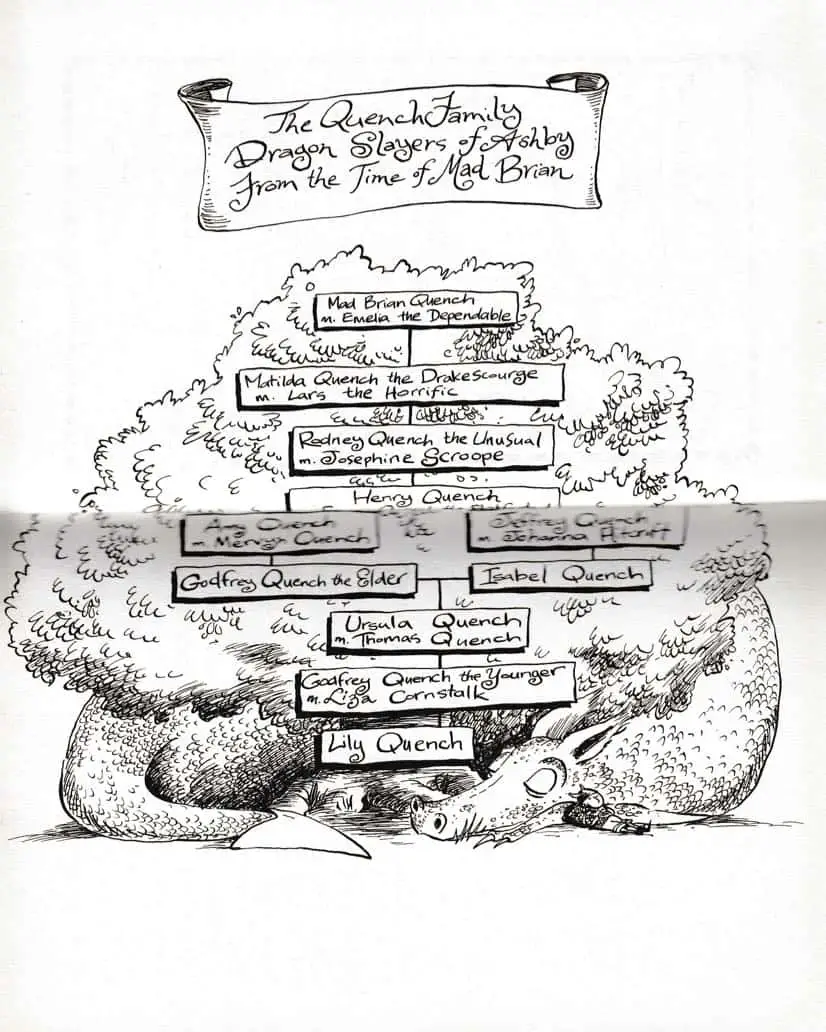 The Quench Family
Dragon Slayers of Ashby
From the Time of Mad Brian
Mad Brian Quench
m. Emelia the Dependable
Matilda Quench the Drakescourge
m. Lars the Horrific
Rodney Quench the Unusual
m. Josephine Scroope
Henry Quench
Amy Quench
m. Mervyn Quench
Jeffrey Quench
m. Johanna
Godfrey Quench the Elder
Isabel Quench
Ursula Quench
m. Thomas Quench
Godfrey Quench the Younger
m. Liza Cornstalk
Lily Quench